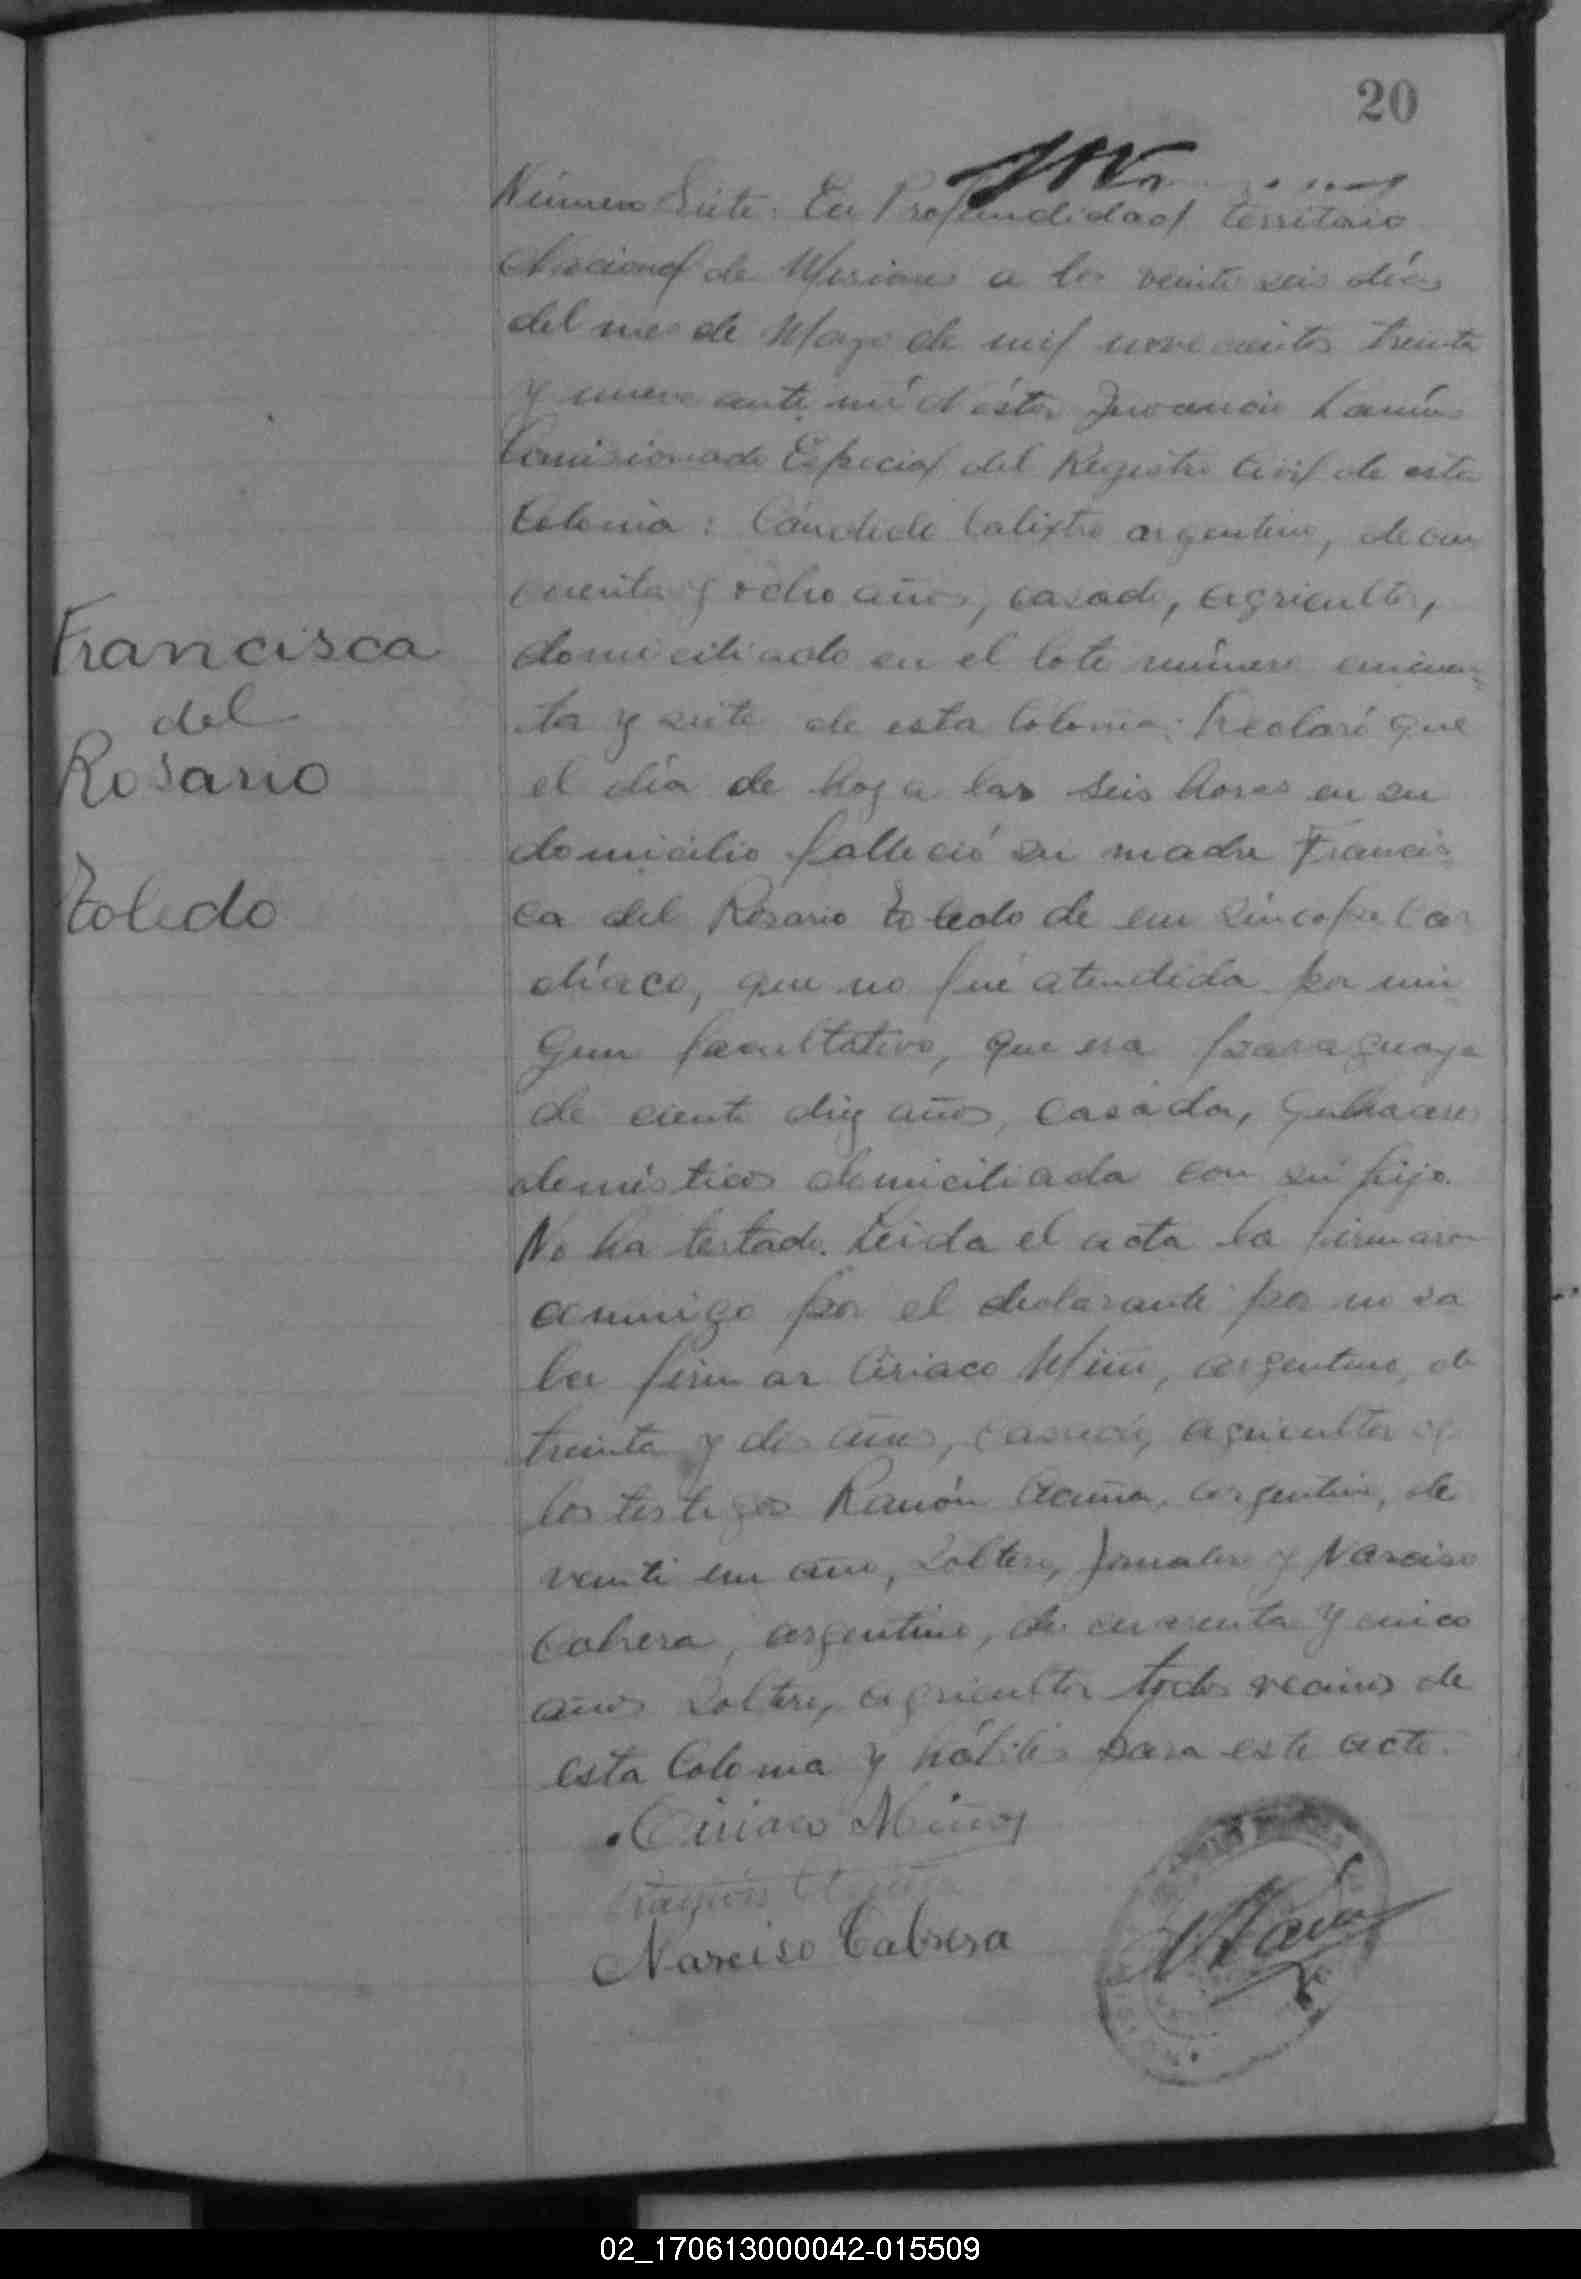 20
Número Siete. En Profundidad territorio
Nacional de Misiones a los veinte seis días
del mes de Mayo de mil novecientos treinta
y nueve ante mí Néstor Juvencio
Comisionado Especial del Registro Civil de esta
Colonia: Cándido Calixto argentino, de cin
cuenta y ocho años, casado, agricultor,
domiciliado en el lote número cincuen=
ta y siete de esta Colonia: Declaró que
el día de hoy a las seis horas en su
domicilio falleció su madre Francis
ca del Rosario Toledo de un síncope car
díaco, que no fué atendida por nin
gun facultativo, que era paraguaya
de ciento diez años, casada, quehaceres
domésticos domiciliada con su hijo.
No ha testado. Leida el acta la firmaron
conmigo por el declarante por no sa
ber firmar Ciriaco Miño, argentino, de
treinta y dos años, casado, agricultor y
los testigos Ramón Acuña, argentino, de
veinti un año, soltero, jornalero y Narciso
Cabrera, argentino, de cuarenta y cinco
años soltero, agricultor todos vecinos de
esta Colonia y hábiles para este acto.
Francisca
del
Rosario
Toledo
Ciriaco Miño
Ramón Acuña
Narciso Cabrera
02_170613000042-015509